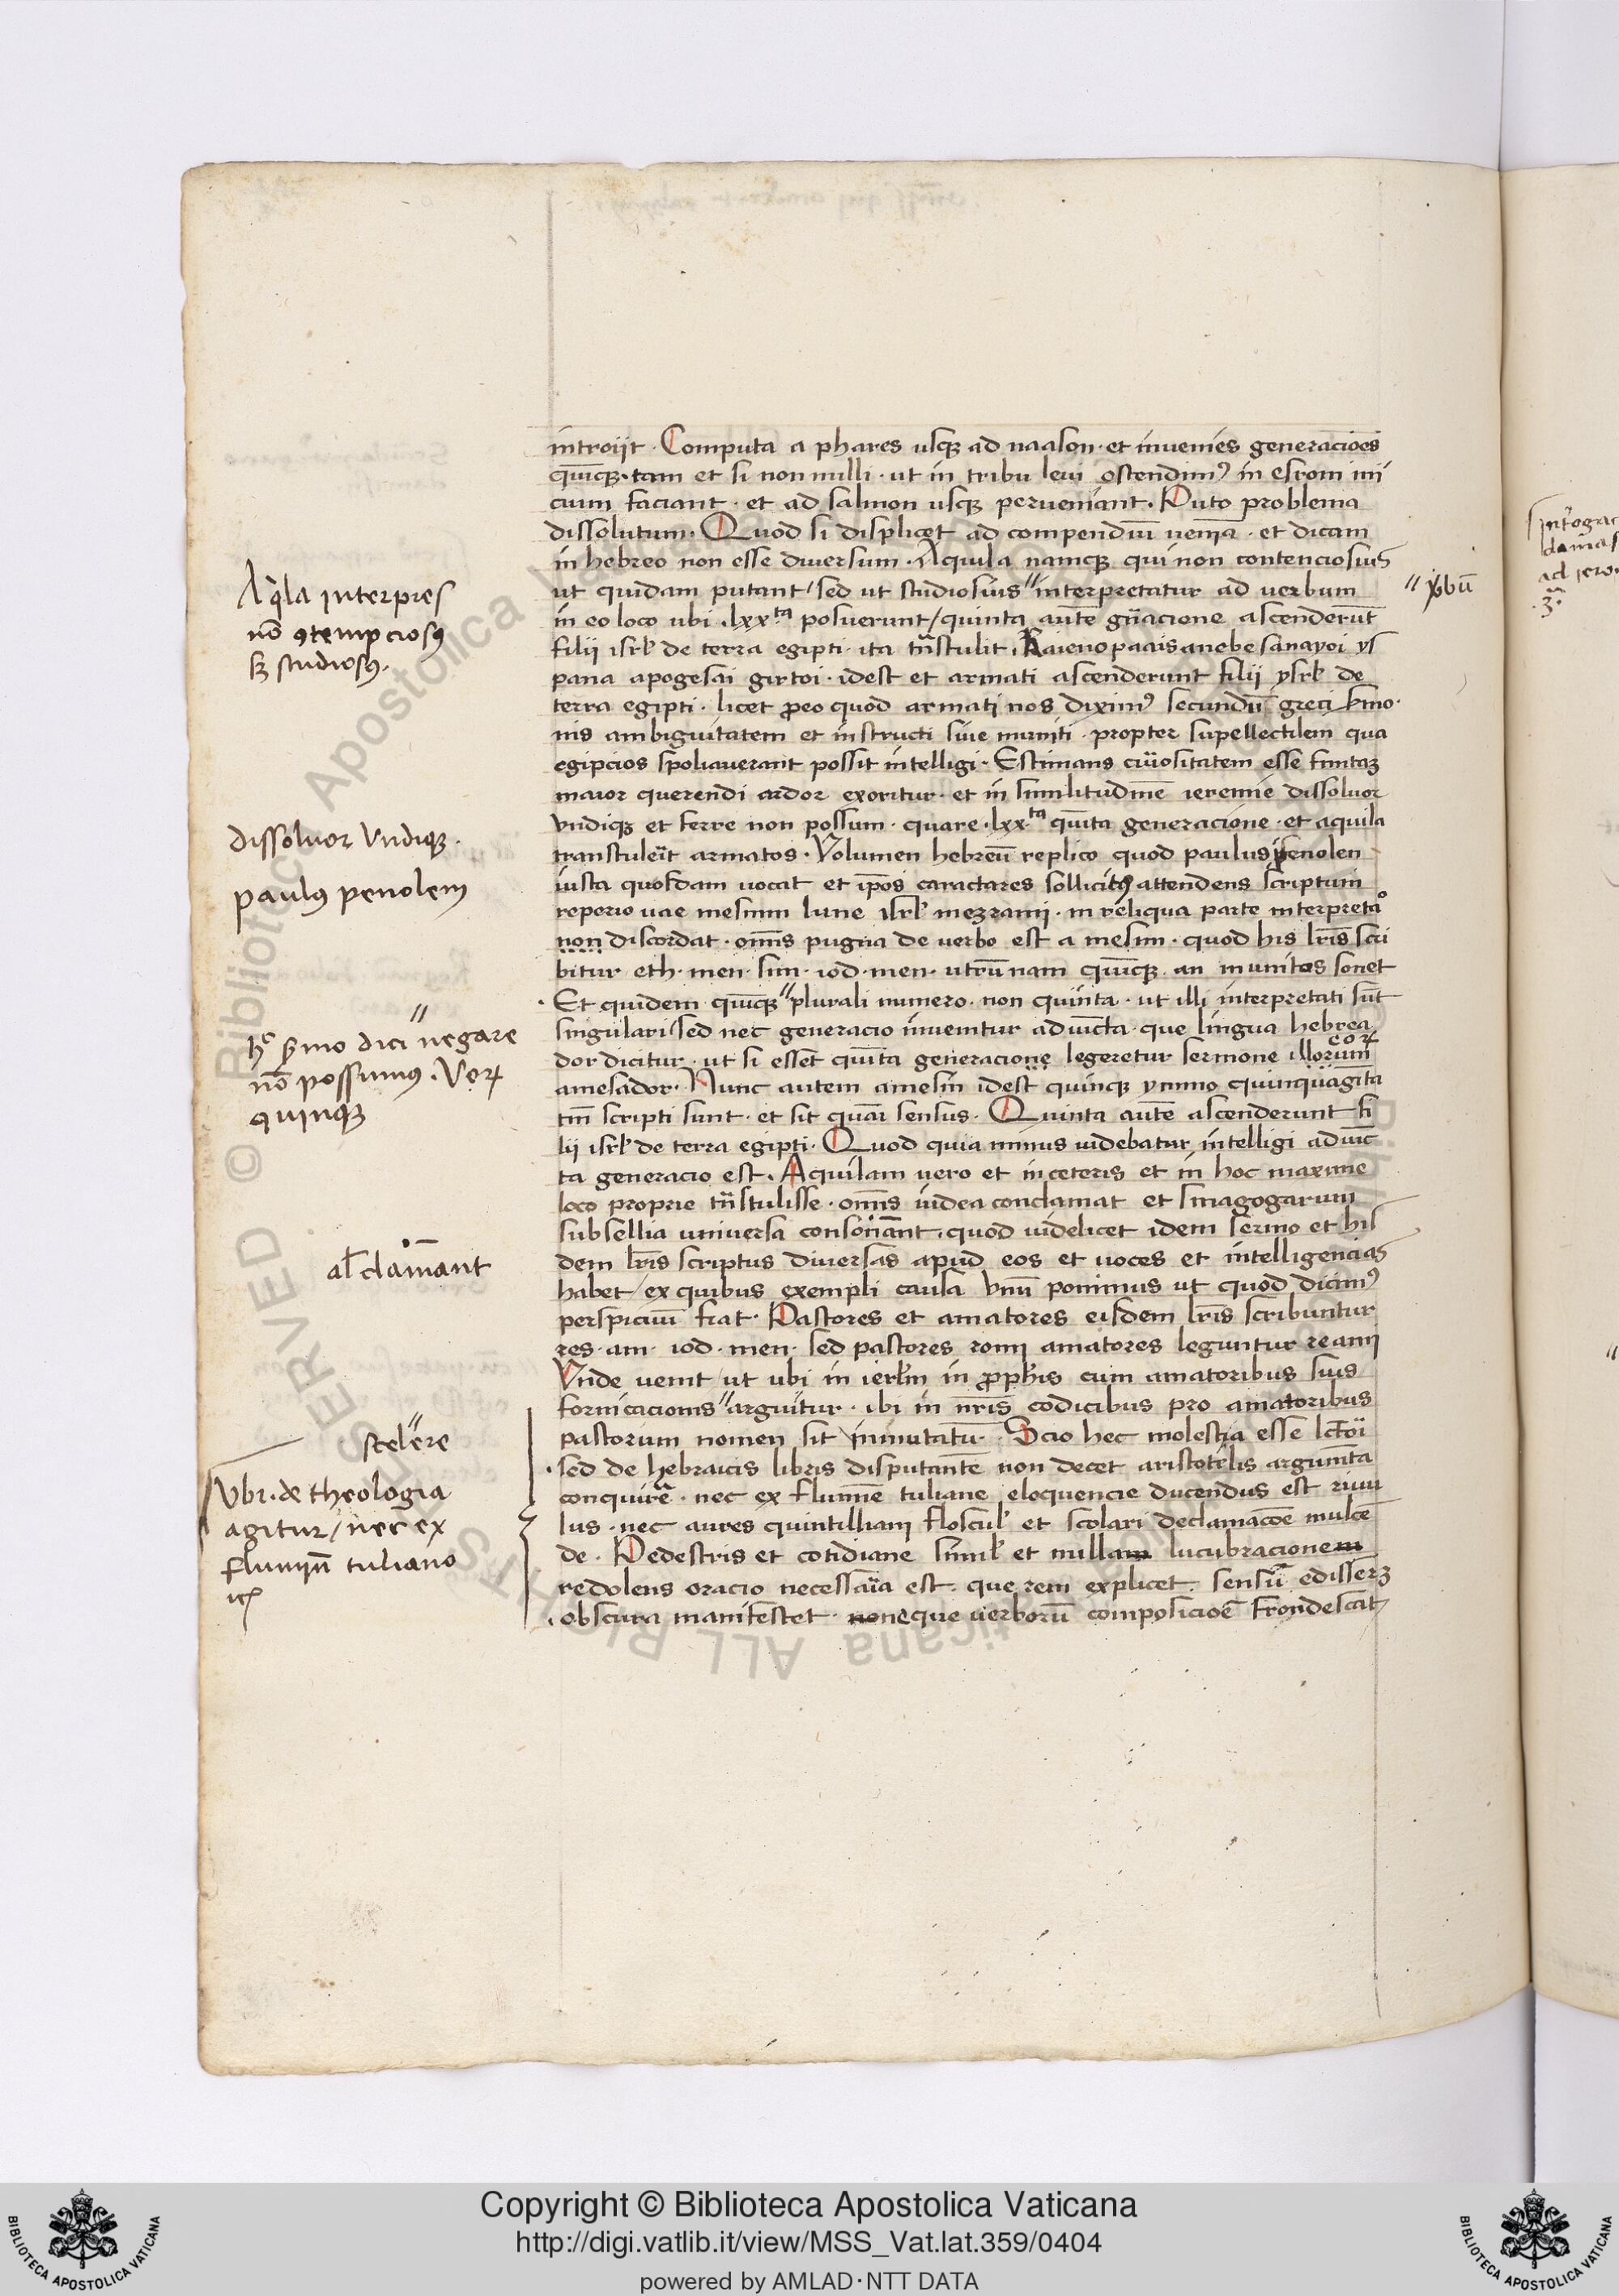 introijt · Computa a phares usqꝫ ad naason · et invenies generacio̅es
qui̅cqꝫ · tam et si non nulli · ut in tribu levi ostendimꝰ in esrom ini
cium faciant · et ad salmon usqꝫ perveniant · Puto problema
dissolutum · Quod si displicet ad compendiu̅ venia̅ · et dicam
in hebreo non esse diversum · Aquila namqꝫ qui non contenciosius
ut quidam putant / sed ut studiosius // interpretatur ad verbum
in eo loco ubi · lxxᵗᵃ posuerunt / quinta aute̅ gn̅acione ascenderu̅t
filii isrl̅ de terra egipti · ita tn̅stulit · Kaieno paais anebesanayoi ys
pana apogesai girtoi · idest et armati ascenderunt filii ysrl̅ de
terra egipti · licet ꝓeo quod armati nos diximꝰ secundu̅ greci ẜmo
nis ambiguitatem et instructi sive muniti · propter supellectilem qua
egipcios spoliaverant possit intelligi · Estimans cu̅iositatem esse finitaꝫ
maior querendi ardor exoritur · et in similitudine̅ ieremie dissolvor
Vndiqꝫ et ferre non possum · quare · lxxᵗᵃ qui̅ta generacione · et aquila
transtulei̅t armatos · Volumen hebreu̅ replico quod paulus penolen
iusta quosdam vocat et ip̅os caractares sollicitꝰ attendens scriptum
reperio vae mesmm lune isrl̅ mezrami · in reliqua parte interpretaᵒ
non discordat · om̅is pugna de verbo est a mesim · quod his lr̅is scri
bitur eth · men · sim · iod · men · utru̅nam qui̅cqꝫ an munitos sonet
· Et quidem qui̅cqꝫ // plurali numero · non quinta · ut illi interpretati su̅t
singulari / sed nec generacio invenitur adiu̅cta · que lingua hebrea
eoꝝ
dor dicitur · ut si esset qui̅ta generacione legeretur sermone illorum
amesador · Nunc autem amesin idest quinqꝫ ymmo quinquagi̅ta
tm̅ scripti sunt · et sit quasi sensus · Quinta aute̅ ascenderunt fi
lii isrl̅ de terra egipti · Quod quia minus videbatur intelligi adiu̅c
ta generacio est · Aquilam vero et in ceteris et in hoc maxime
loco proprie tn̅stulisse · om̅is iudea conclamat et sinagogarum
subsellia universa consonant · quod videlicet idem sermo et his
dem lr̅is scriptus diversas apud eos et voces et intelligencias
habet / ex quibus exempli causa vnu̅ ponimus ut quod dicimꝰ
perspicuu̅ fiat · Pastores et amatores eisdem lr̅is scribuntur
res · am · iod · men · sed pastores romi amatores leguntur reami
Vnde venit / ut ubi in ierl̅m in ꝓph̅is cum amatoribus suis
fornicacionis // arguitur · ibi in nr̅is codicibus pro amatoribus
pastorum nomen sit inmutatu̅ · Scio hec molestia esse lc̅toi̅
· sed de hebraicis libris disputante̅ non decet aristotelis argume̅ta
conquire̅ · nec ex flumi̅e tuliane eloquencie ducendus est rivu
lus · nec aures quintilliani floscul̅ et scolari declamaco̅e mulce̅
de · Pedestris et cotidiane simil̅ et nullam lucubracionem
redolens oracio necessai̅a est · que rem explicet · sensu̅ edisserꝫ
· obscura manifestet · noneque verboru̅ composicioe̅ frondescat
Aqⁱla interpres
no̅ ꝯtempciosꝰ
sꝫ studiosꝰ.
dissolvor Vndiqꝫ·
paulꝰ penolem
//
hᵒ pͥmo dici negare
no̅ possumꝰ · Voꝝ
quinqꝫ
al̅ clama̅nt
scelere
Vbi · de theologia
agitur / nec ex
flumin̅ tuliano
// v̓bu̅
damas
ad iero